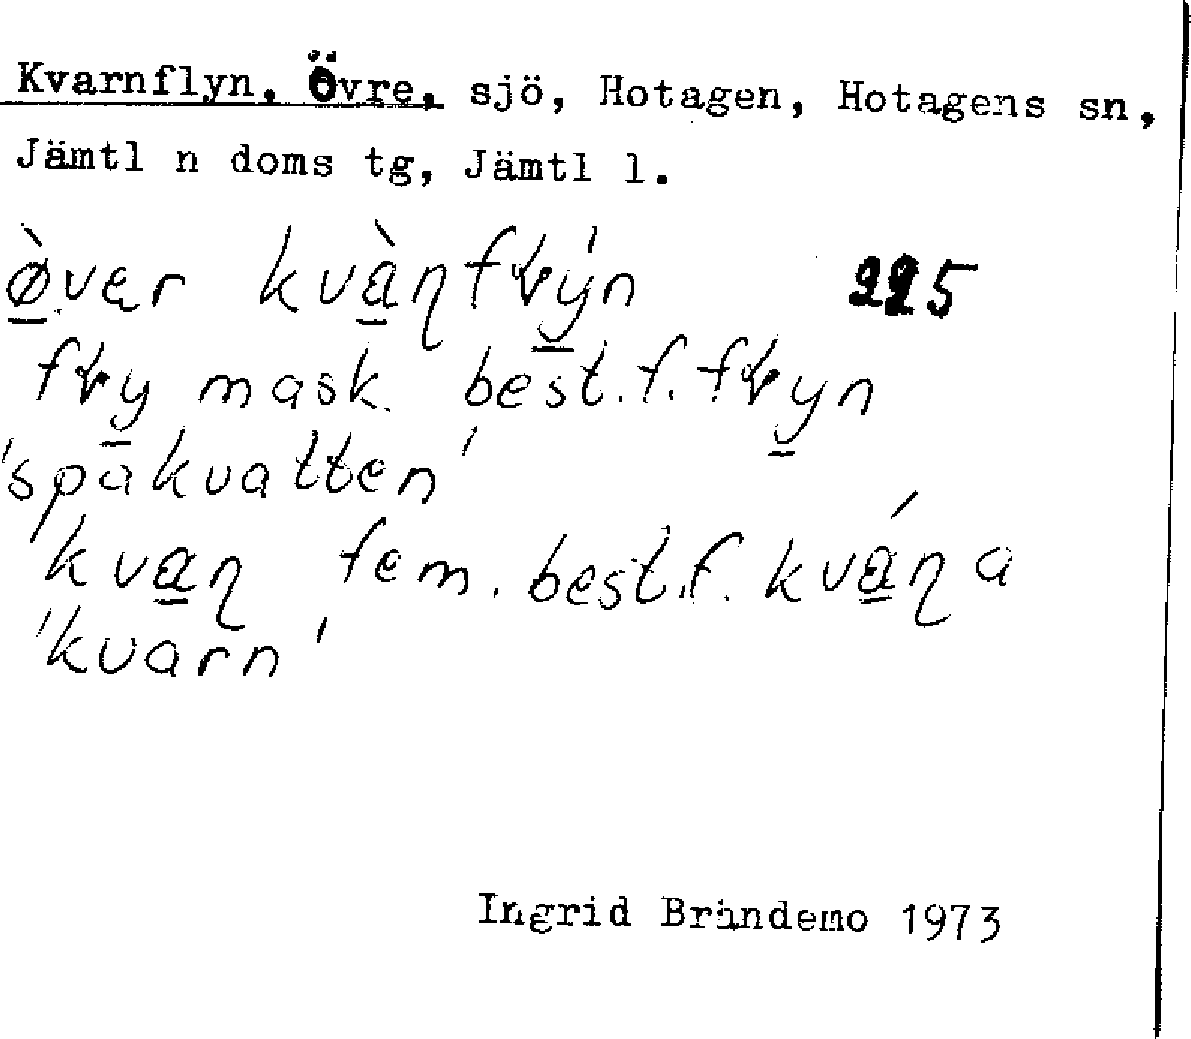 Kvarnflyn, Övre, sjö, Hotagen, Hotagens sn,
Jämtl n doms tg, Jämtl l.
ø̠̀vær kvà̠ɳfɽý̠n 225
fɽy̠ mask. best.f. fɽy̠n
'spåkvatten'
kva̠ɳ fem. best.f. kvá̠ɳa
'kvarn'
Ingrid Brändemo 1973